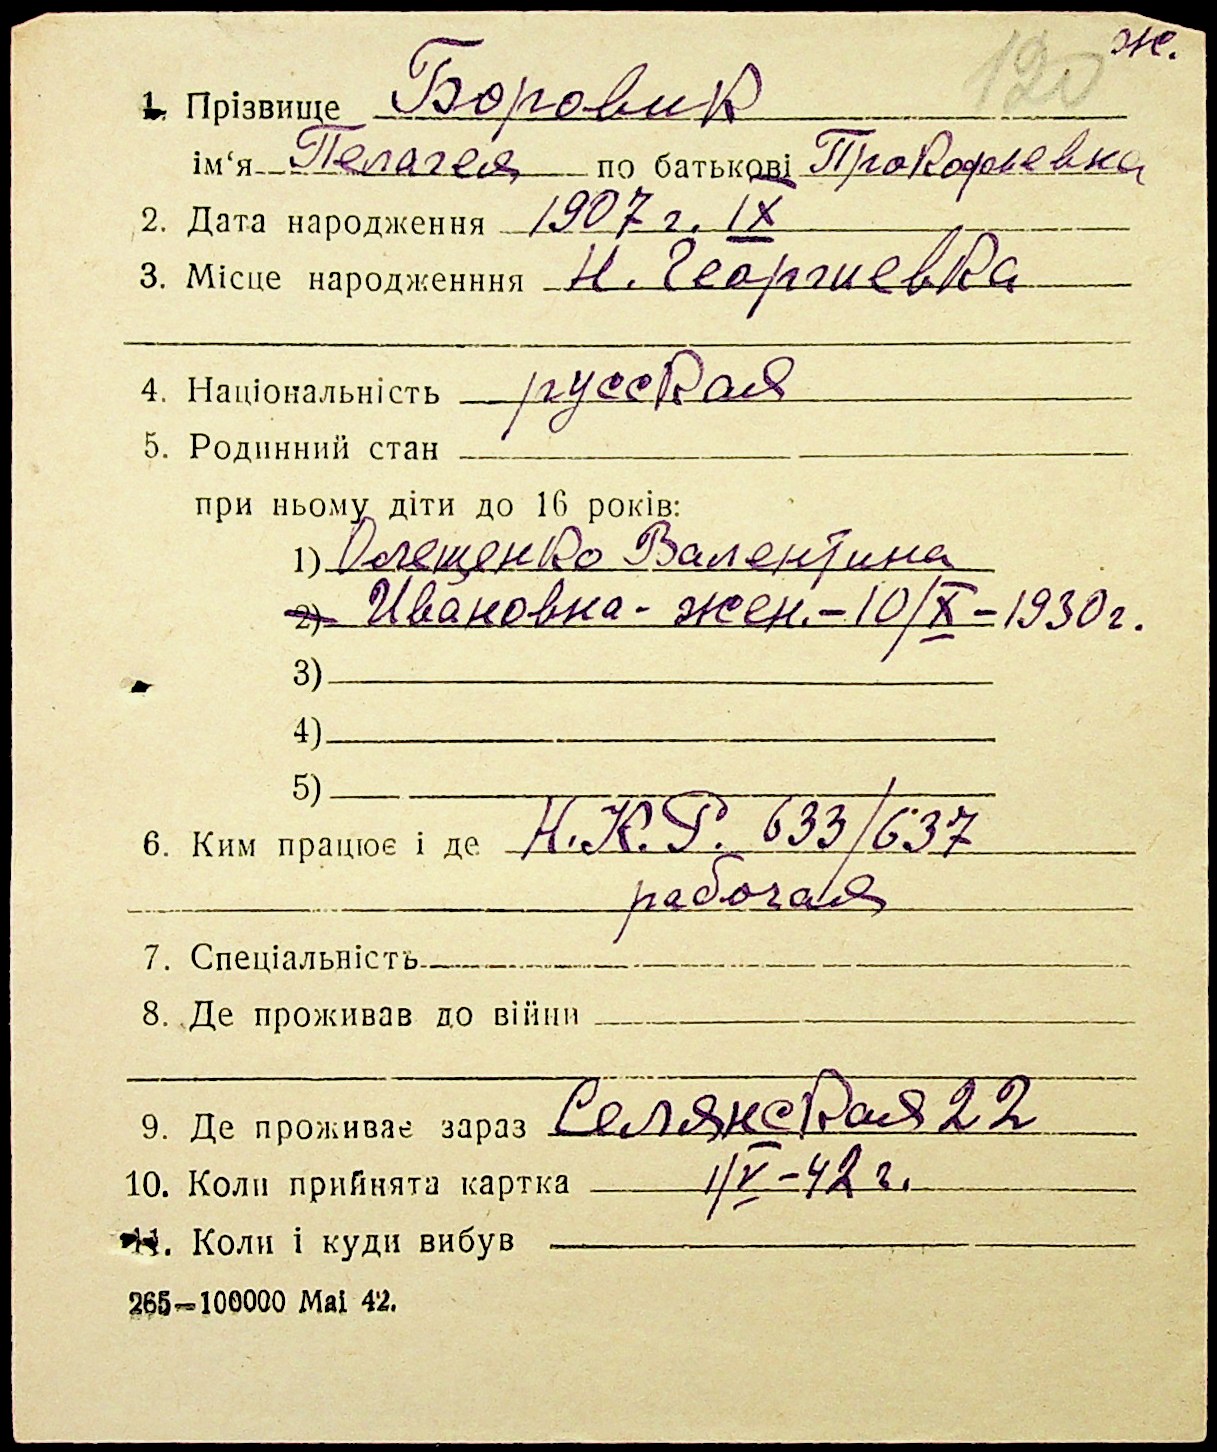 120 ж.
1. Прізвище Боровик
ім‘я Пелагея по батькові Прокофьевна
2. Дата народження 1907 г. IX
3. Місце народженння Н. Георгиевка
4. Національність русская
5. Родинний стан
при ньому діти до 16 років:
1) Олещенко Валентина
2) Ивановна - жен. - 10/X - 1930 г.
3)
4)
5)
6. Ким працює і де Н.К.Р. 633/637
рабочая
7. Спеціальність
8. Де проживав до війни
9. Де проживає зараз Селянская 22
10. Коли прийнята картка 1/V - 42 г.
11. Коли і куди вибув
265—100000 Mai 42.